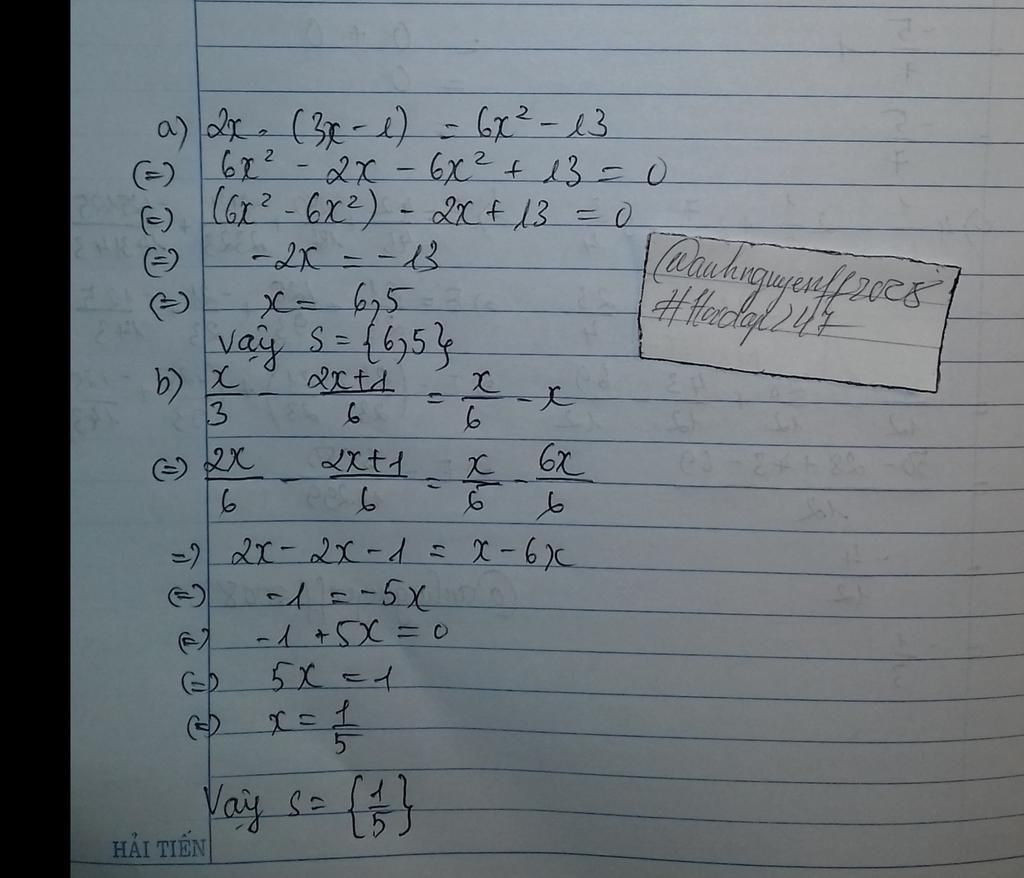 a) 2x . (3x - 1) = 6x² - 13
(=) 6x² - 2x - 6x² + 13 = 0
(=) (6x² - 6x²) - 2x + 13 = 0
(=) -2x = -13
(=) x = 6,5
Vậy S = {6,5}
@anhnguyenff2008
#Hoidap247
b) x/3 - (2x+1)/6 = x/6 - x
(=) 2x/6 - (2x+1)/6 = x/6 - 6x/6
=) 2x - 2x - 1 = x - 6x
(=) -1 = -5x
(=) -1 + 5x = 0
(=) 5x = 1
(=) x = 1/5
Vậy S = {1/5}
HẢI TIẾN